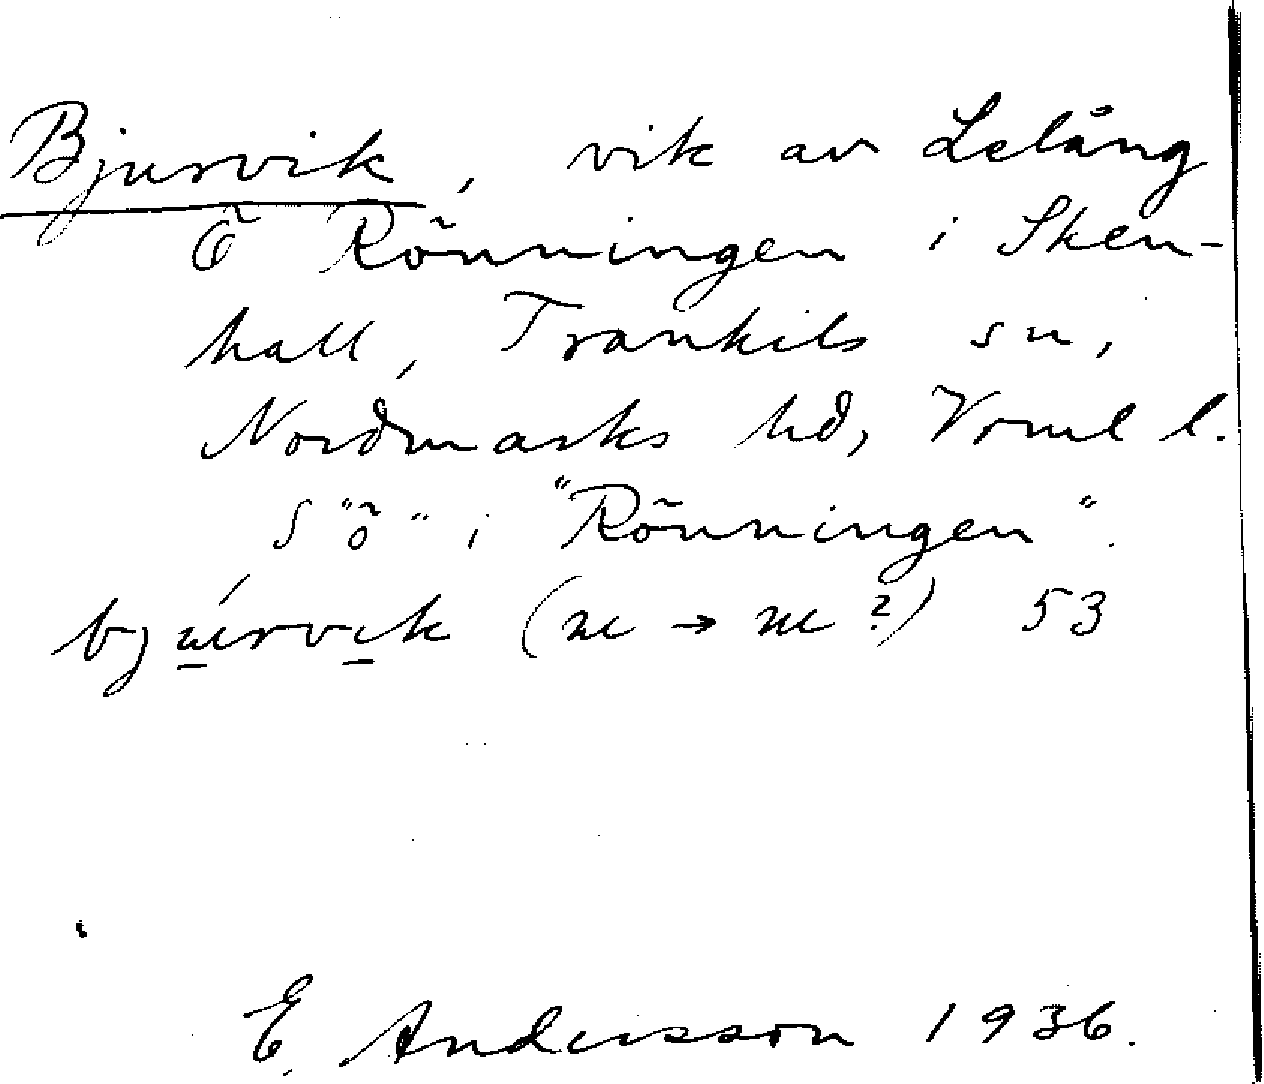 Bjurvik, vik av Lelång
Ö Rönningen i Sken-
hall, Trankils sn,
Nordmarks hd, Vrml l.
S "ö" i "Rönningen".
bjúrvik (u → u ?) 53
E. Andersson 1936.